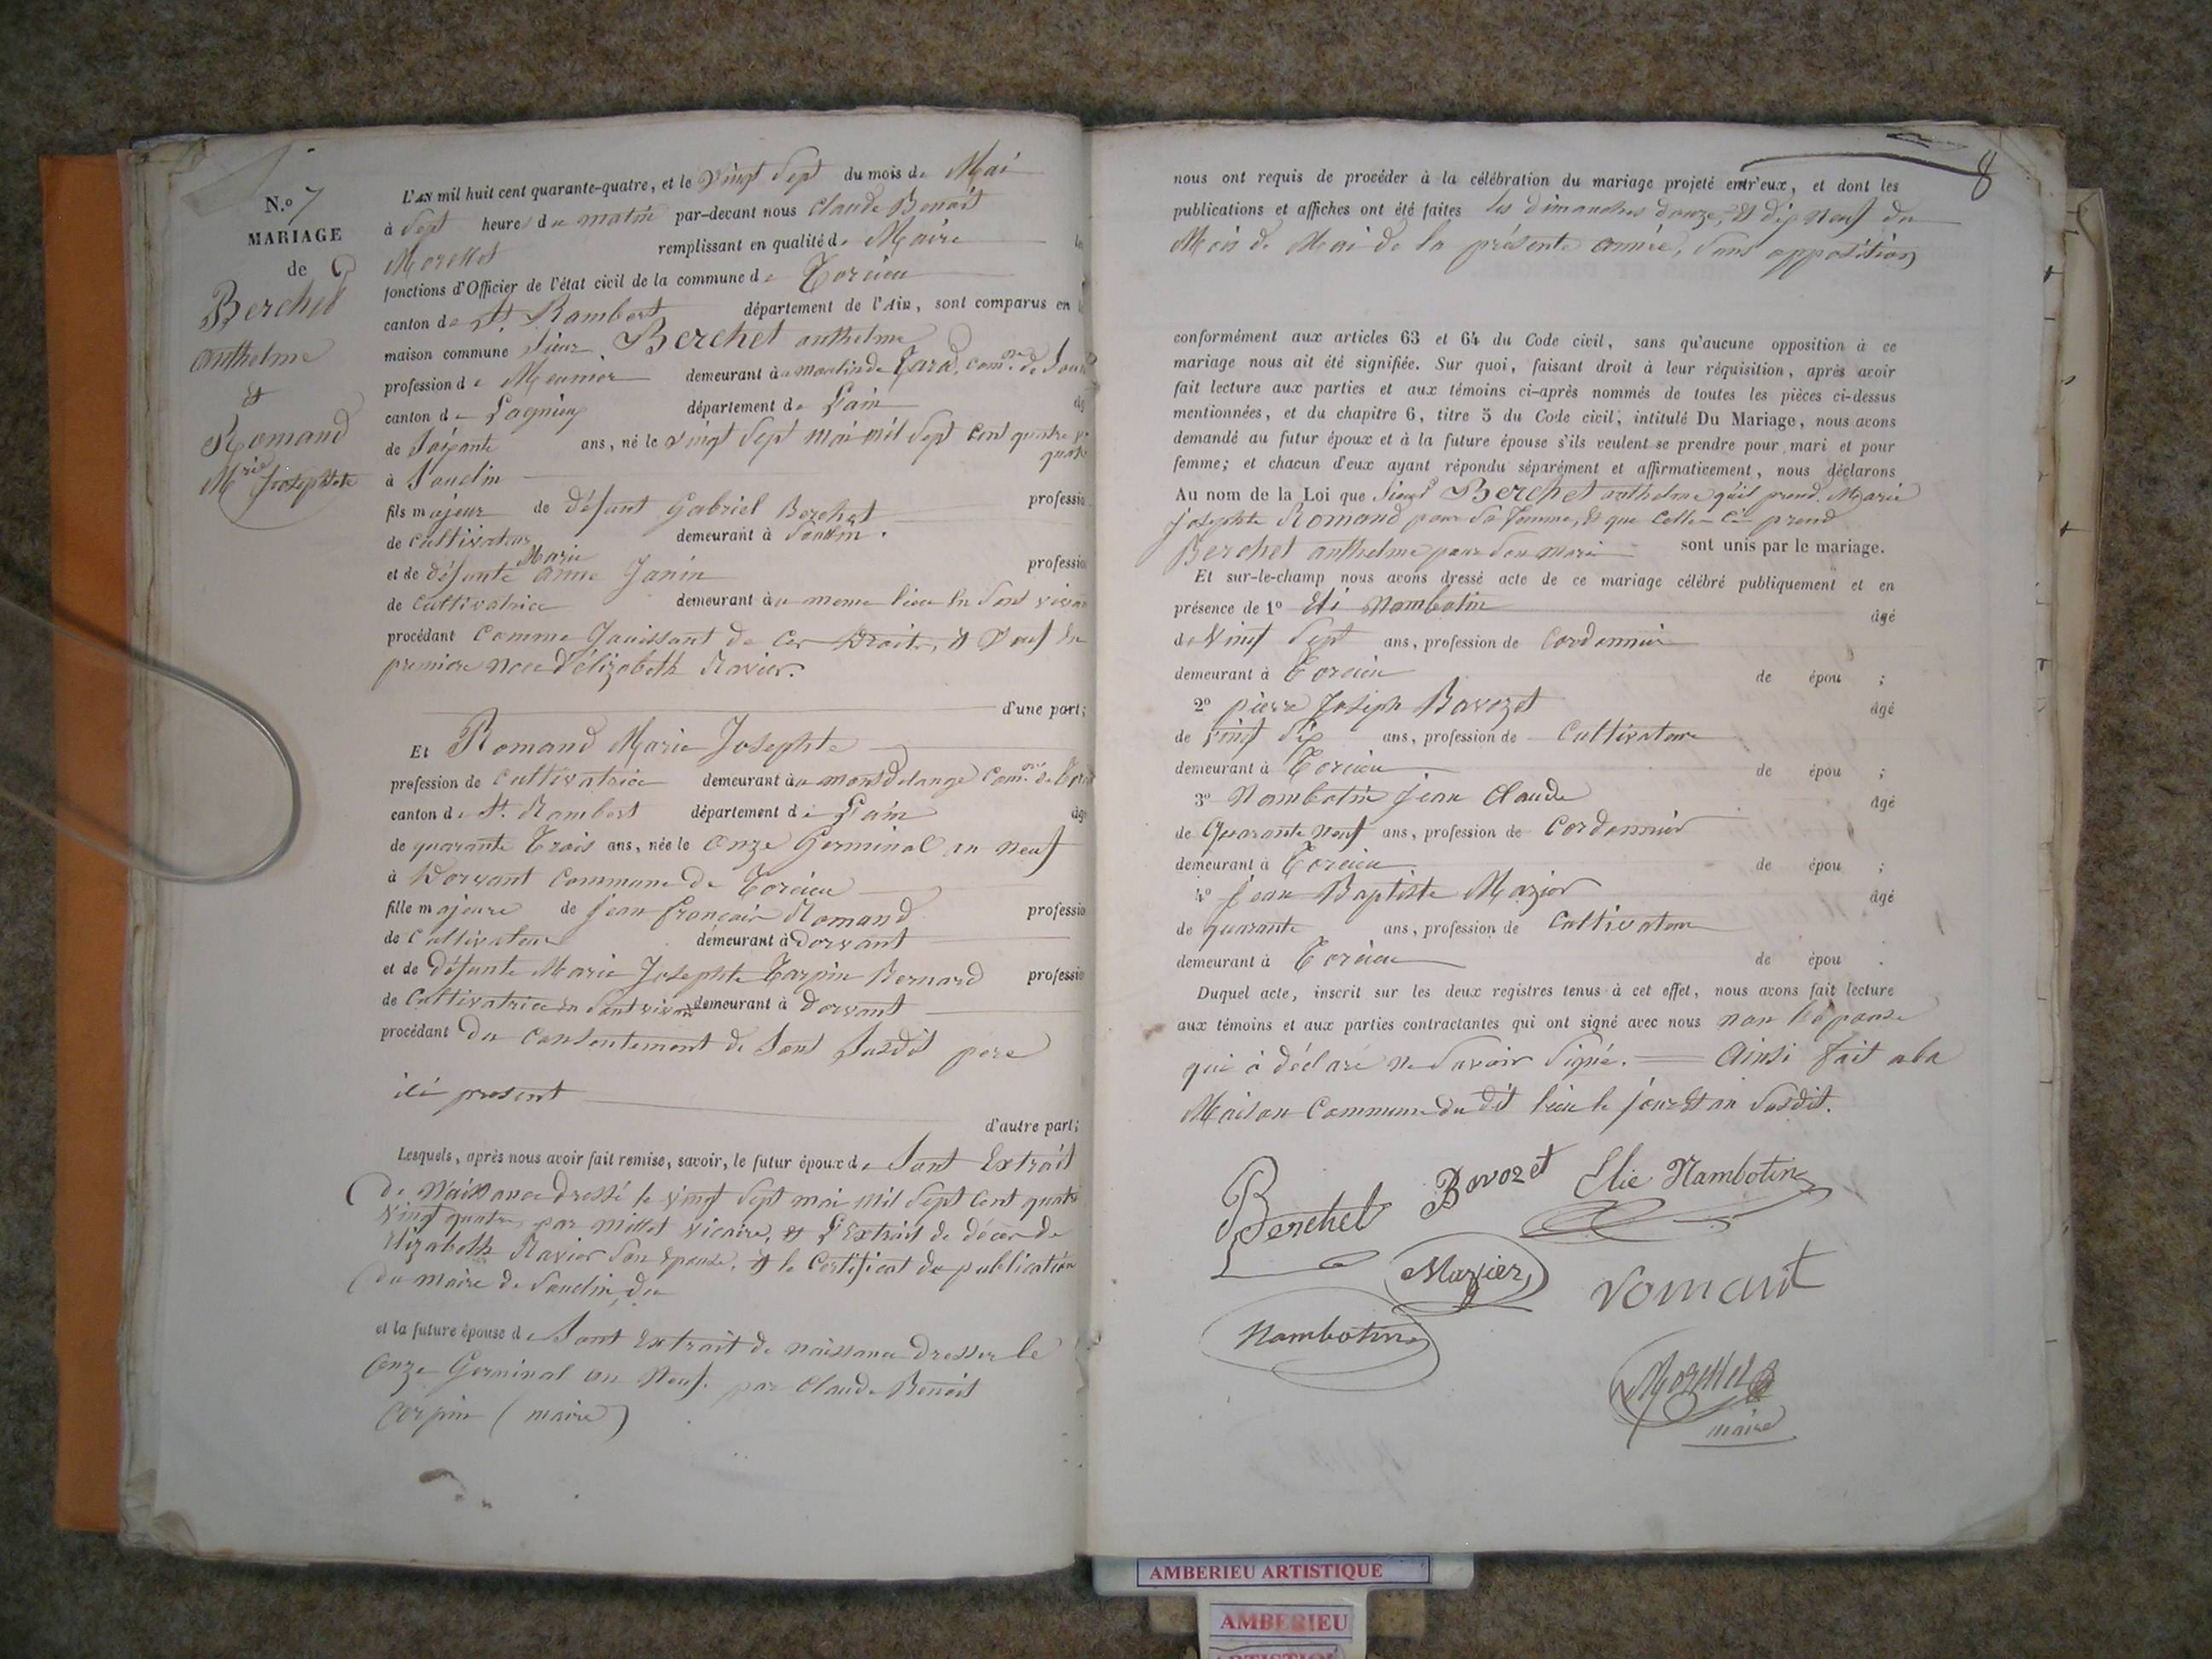 N.º 7
MARIAGE
de
Berchet
anthelme
et
Romand
Mrie Josephte
L'AN mil huit cent quarante-quatre, et le vingt Sept du mois de Mai
à Sept heures du matin par-devant nous Claude Benoit
Morellet remplissant en qualité de Maire
fonctions d'Officier de l'état civil de la commune de Torcieu
canton de St. Rambert département de l'AIN, sont comparus en
maison commune Sieur Berchet anthelme
profession de Meunier demeurant au moulin de com.ne de
canton de Lagnieu département de Lain
de Soixante ans, né le vingt Sept mai mil Sept Cent quatre
à Soudin
fils majeur de défunt Gabriel Berchet professio
de Cultivateur demeurant à Soudin.
et de défunte Marie anne Janin professio
de Cultivatrice demeurant au meme lieu En Son vivan
procédant Comme Jouissant de Ces Droits, et Veuf En
premiere noce d'élizabeth Ravier.
d'une part;
Et Romand Marie Josephte
profession de Cultivatrice demeurant au montdelange Com.ne de
canton de St. Rambert département de Lain
de quarante Trois ans, née le Onze Germinal an neuf
à Dorvant Commune de Torcieu
fille majeure de Jean françois Romand professio
de Cultivateur demeurant à Dorvant
et de défunte Marie Josephte Tarpin Bernard professio
de Cultivatrice En Sont vivan demeurant à Dorvant
procédant du Consentement de Sont Susdit pere
ici present
d'autre part;
Lesquels, après nous avoir fait remise, savoir, le futur époux de Sont Extrait
de Naissance dressé le vingt Sept mai mil Sept Cent quatre
vingt quatre par millet vicaire, et L'Extrait de décès de
Elizabeth Ravier Son Epouse, et le Certificat de publication
du maire de Soudin, du
et la future épouse de Sont Extrait de naissance dresser le
Onze Germinal an Neuf. par Claude Benoit
(maire)
8
nous ont requis de procéder à la célébration du mariage projeté entr'eux, et dont les
publications et affiches ont été faites les dimanches douze, et dix neuf du
Mois de Mai de la présente année, Sans opposition
conformément aux articles 63 et 64 du Code civil, sans qu'aucune opposition à ce
mariage nous ait été signifiée. Sur quoi, faisant droit à leur réquisition, après avoir
fait lecture aux parties et aux témoins ci-après nommés de toutes les pièces ci-dessus
mentionnées, et du chapitre 6, titre 5 du Code civil, intitulé Du Mariage, nous avons
demandé au futur époux et à la future épouse s'ils veulent se prendre pour mari et pour
femme; et chacun d'eux ayant répondu séparément et affirmativement, nous déclarons
Au nom de la Loi que Sieur Berchet anthelme qu'il prend Marie
Josephte Romand pour Sa femme, et que Celle-Ci prend
Berchet anthelme pour Son mari sont unis par le mariage.
Et sur-le-champ nous avons dressé acte de ce mariage célébré publiquement et en
présence de 1º Eli Nambotin âgé
de Vingt Sept ans, profession de Cordonnier
demeurant à Torcieu de épou ;
2º pierre Joseph Bavozet âgé
de Vingt Six ans, profession de Cultivateur
demeurant à Torcieu de épou ;
3º Nambotin Jean Claude âgé
de Quarante Neuf ans, profession de Cordonnier
demeurant à Torcieu de épou ;
4º Jean Baptiste Mazier âgé
de quarante ans, profession de Cultivateur
demeurant à Torcieu de épou .
Duquel acte, inscrit sur les deux registres tenus à cet effet, nous avons fait lecture
aux témoins et aux parties contractantes qui ont signé avec nous non l'épouse
qui à déclaré ne Savoir Signé. Ainsi fait a la
Maison Commune du dit lieu le jour et an Susdit.
Berchet
Bavozet
Elie Nambotin
Mazier
romant
Nambotin
Morellet
maire
AMBERIEU ARTISTIQUE
AMBERIEU
ARTISTIQUE